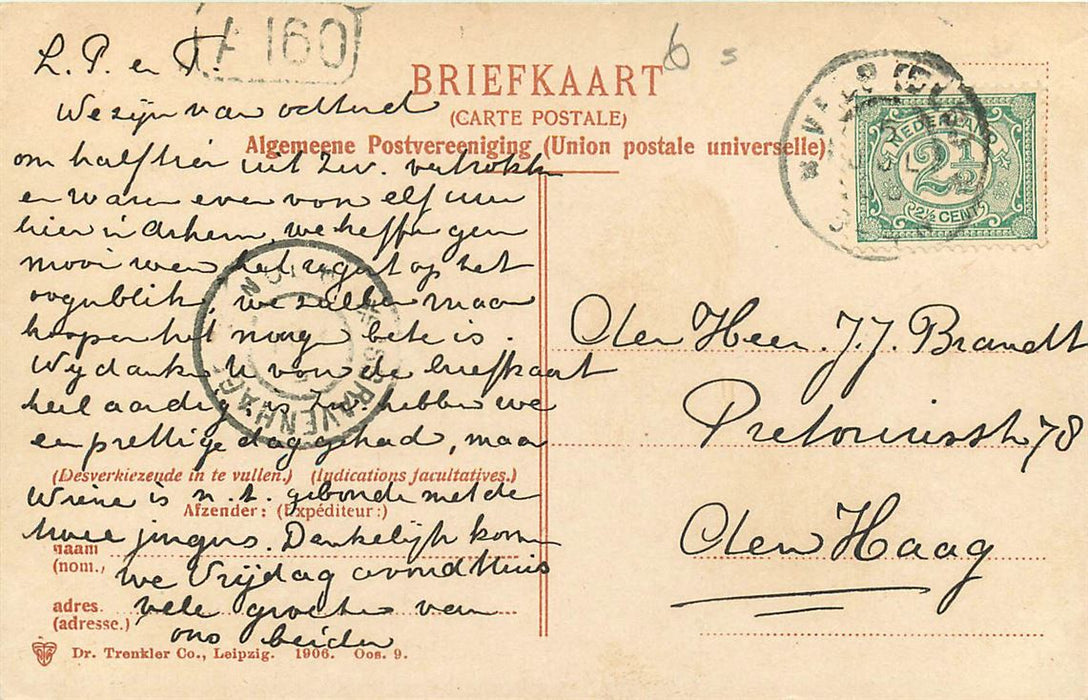 A 160
6 s
BRIEFKAART
(CARTE POSTALE)
Algemeene Postvereeniging (Union postale universelle)
L. P. en T.
We zijn van
om half tien uit Zw. vertrokken
en waren even voor elf uur
hier in Arhem, we heffe geen
mooi weer het regent op het
oogenblik, we zullen maar
hopen het noog bete is.
Wij danken U voor de briefkaart
heel aardig is hebben we
een prettige dag gehad, maar
(Desverkiezende in te vullen.) (Indications facultatives.)
Wiene is n.t. gebonde met de
Afzender: (Expéditeur:)
twee jingens. Denkelijk kom
naam
(nom.,
we Vrijdag avond thuis
adres.
(adresse.)
vele groete van
ons beiden
Dr. Trenkler Co., Leipzig. 1906. Oos. 9.
'S GRAVENHAGE
VELP
NEDERLAND
2½
2½ CENT
Den Heer. J. J. Brandt
Pretoriusstr 78
Den Haag